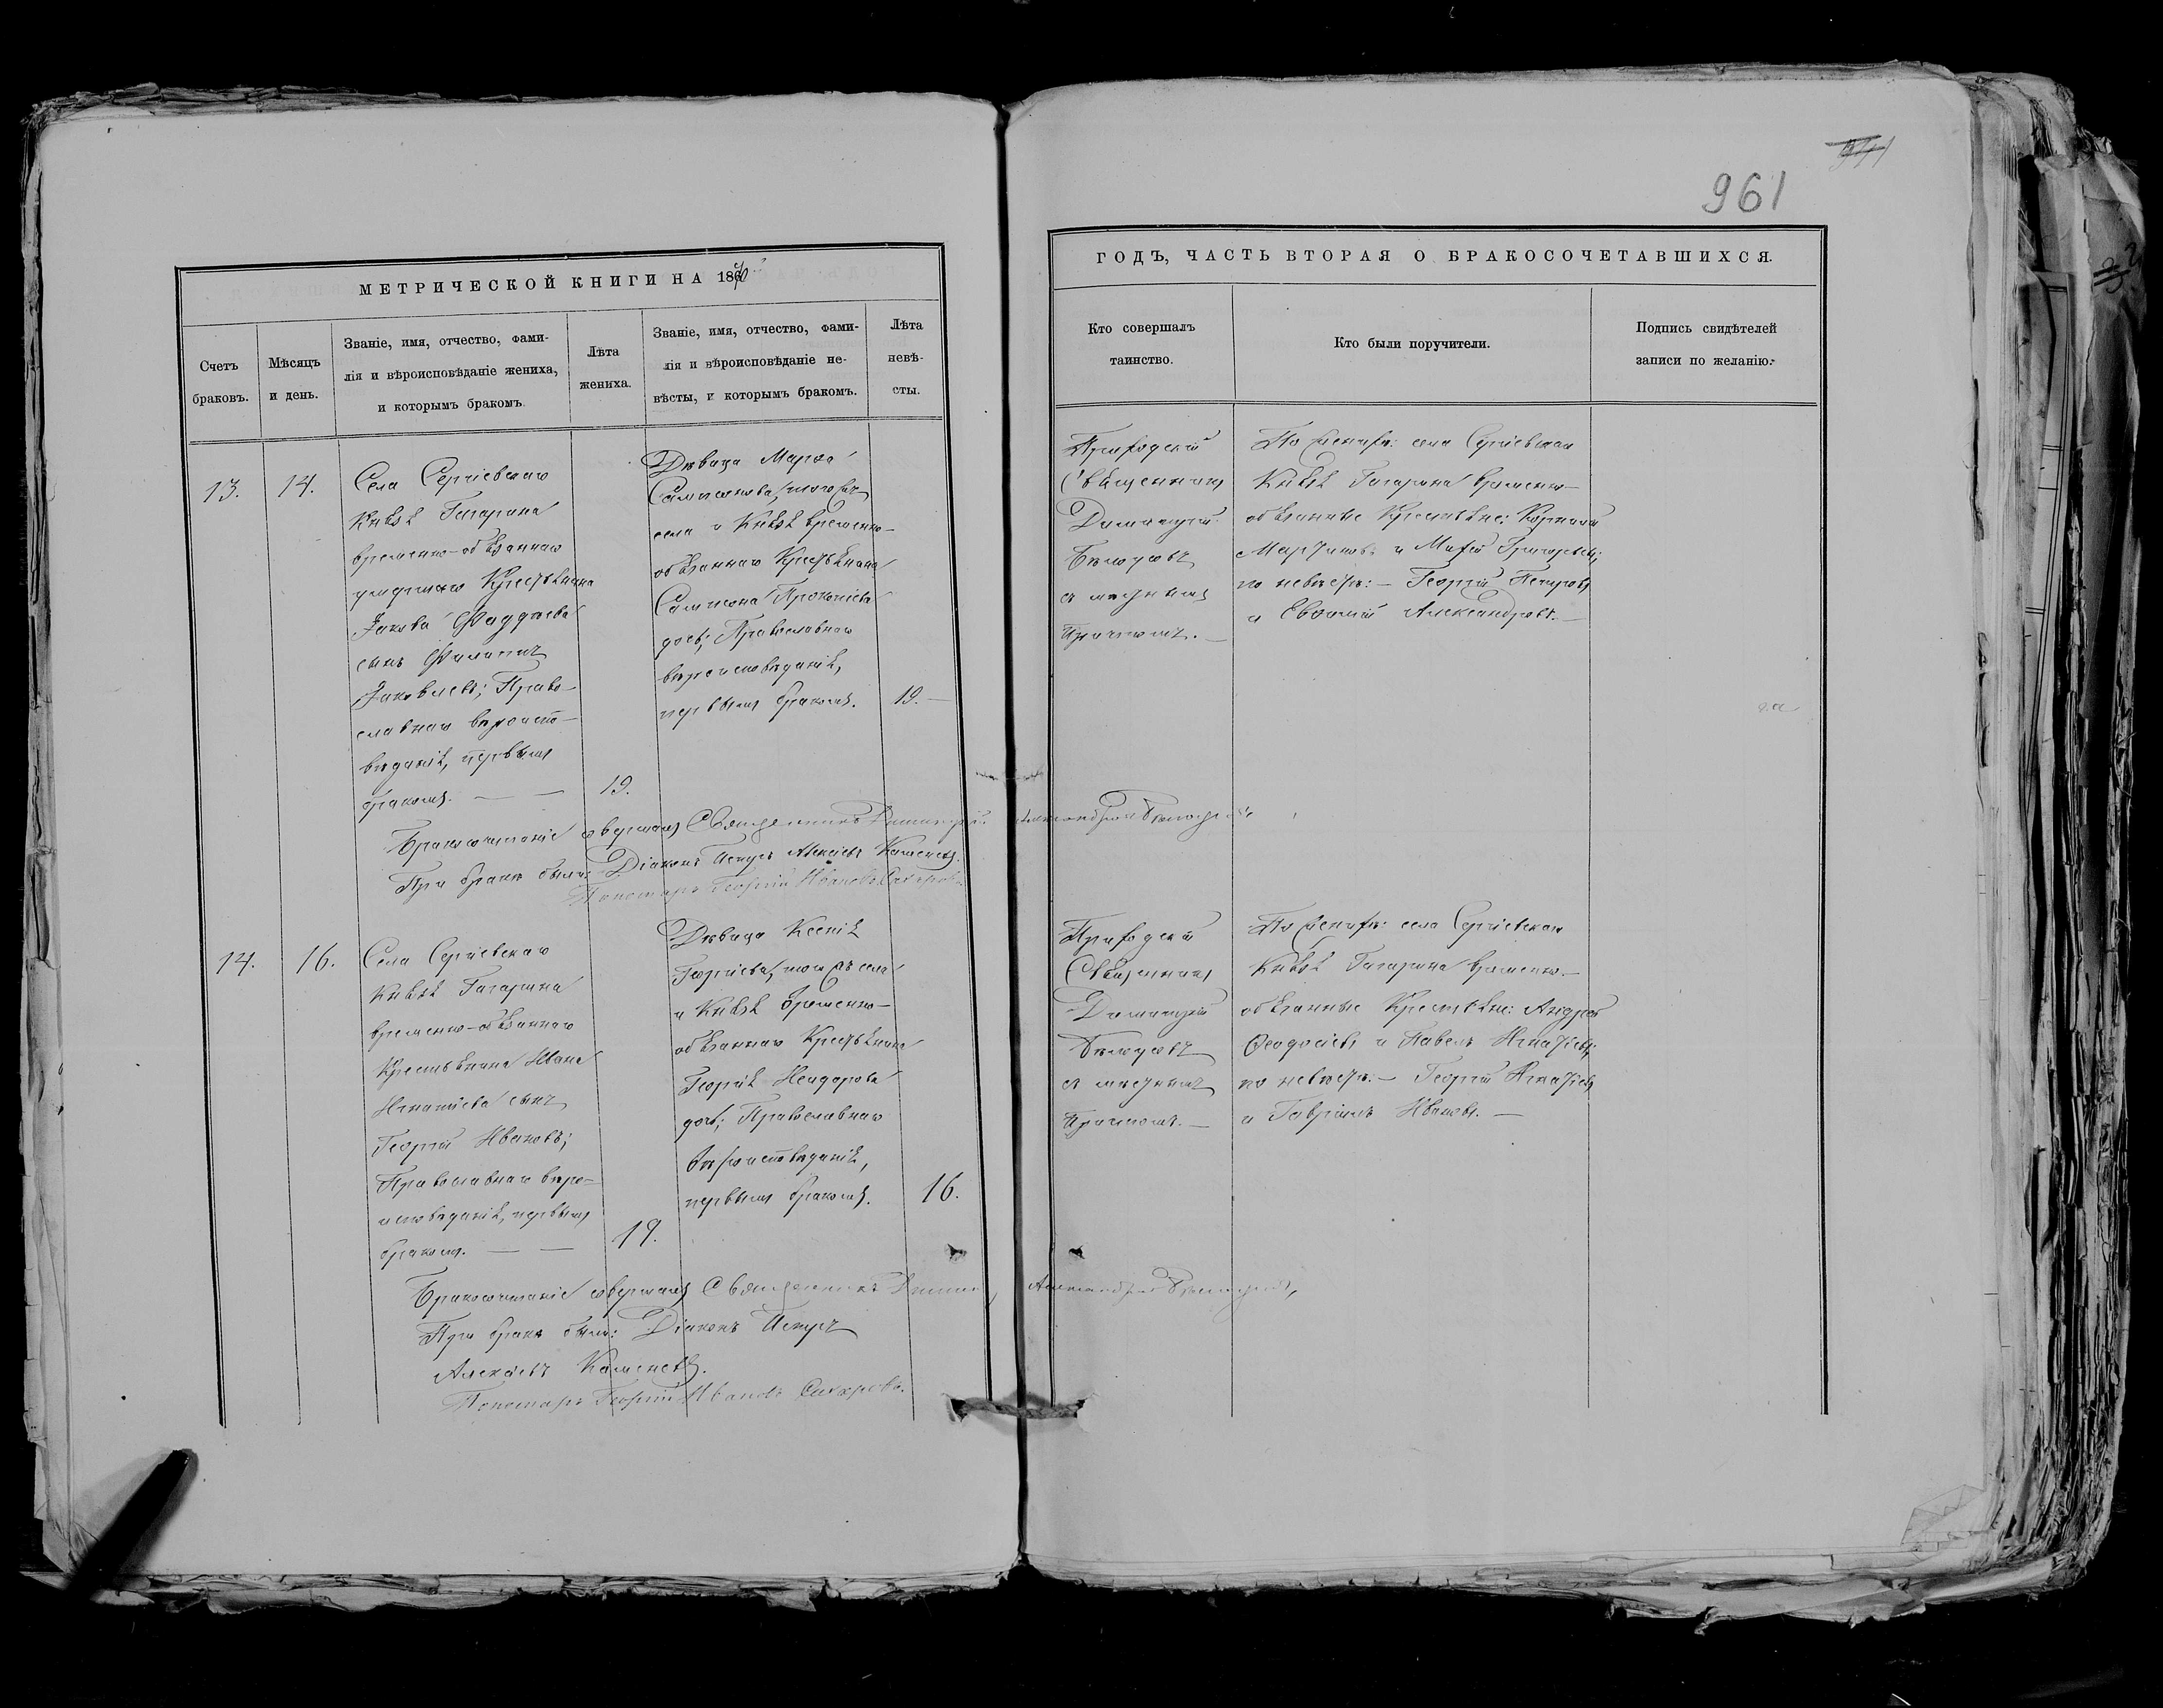 961
МЕТРИЧЕСКОЙ КНИГИ НА 1870
Счетъ
браковъ.
Мѣсяцъ
и день.
Званіе, имя, отчество, фами-
лія и вѣроисповѣданіе жениха,
и которымъ бракомъ.
Лѣта
жениха.
Званіе, имя, отчество, фами-
лія и вѣроисповѣданіе не-
вѣсты, и которымъ бракомъ.
Лѣта
невѣ-
сты.
13.
14.
Села Сергіевскаго
Князя Гагарина
временно-обязаннаго
умершаго Крестьянина
Іакова Фаддѣева
сынъ Филиппъ
Іаковлевъ; Право-
славнаго вѣроиспо-
вѣданія, первымъ
бракомъ.
19.
Дѣвица Марѳа
Сампсонова, того же
села и Князя временно-
обязаннаго Крестьянина
Сампсона Прокопіева
дочь; Православнаго
вѣроисповѣданія,
первымъ бракомъ.
19.
Бракосочетаніе совершалъ Священникъ Димитрій Александровъ Бѣлоусовъ
При бракѣ были: Діаконъ Петръ Алексіевъ Каменевъ.
Пономарь Георгій Ивановъ Сахаровъ.
14.
16.
Села Сергіевскаго
Князя Гагарина
временно-обязаннаго
Крестьянина Ивана
Игнатіева сынъ
Георгій Ивановъ;
Православнаго вѣро-
исповѣданія, первымъ
бракомъ.
19.
Дѣвица Ксенія
Георгіева, того жъ села
и Князя временно-
обязаннаго Крестьянина
Георгія Исидорова
дочь; Православнаго
вѣроисповѣданія,
первымъ бракомъ.
16.
Бракосочетаніе совершалъ Священникъ Димитрій Александровъ Бѣлоусовъ,
При бракѣ были: Діаконъ Петръ
Алексіевъ Каменевъ.
Пономарь Георгій Ивановъ Сахаровъ.
ГОДЪ, ЧАСТЬ ВТОРАЯ О БРАКОСОЧЕТАВШИХСЯ.
Кто совершалъ
таинство.
Кто были поручители.
Подпись свидѣтелей
записи по желанію.
Приходскій
Священникъ
Димитрій
Бѣлоусовъ
съ
Причтомъ.
По женихѣ: села Сергіевскаго
Князя Гагарина временно-
обязанные Крестьяне: Корнилій
и Григорьевъ;
по невѣстѣ: — Георгій Петровъ
и Евѳимій Александровъ.
Приходскій
Священникъ
Димитрій
Бѣлоусовъ
съ
Причтомъ.
По женихѣ: села Сергіевскаго
Князя Гагарина временно-
обязанные Крестьяне: Андрей
Ѳеодосіевъ и Павелъ Игнатіевъ;
по невѣстѣ: — Георгій Игнатіевъ
и Гавріилъ Ивановъ.